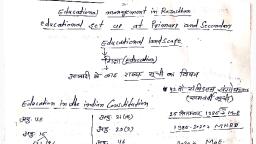 Educational management in Rajasthan
educational set up at Primary and Secondary
Educational landscape
शिक्षा (Education)
आजादी के बाद राज्य सूची का विषय
42 वां संविधान
(समवर्ती सूची)
Education in the Indian Constitution
अनु. 45
अनु. 21(A)
25 सितम्बर 1985 - MoE
1985-2020 MHRD
अनु. 15
अनु. 29(2)
अनु. 46
2020 MoE